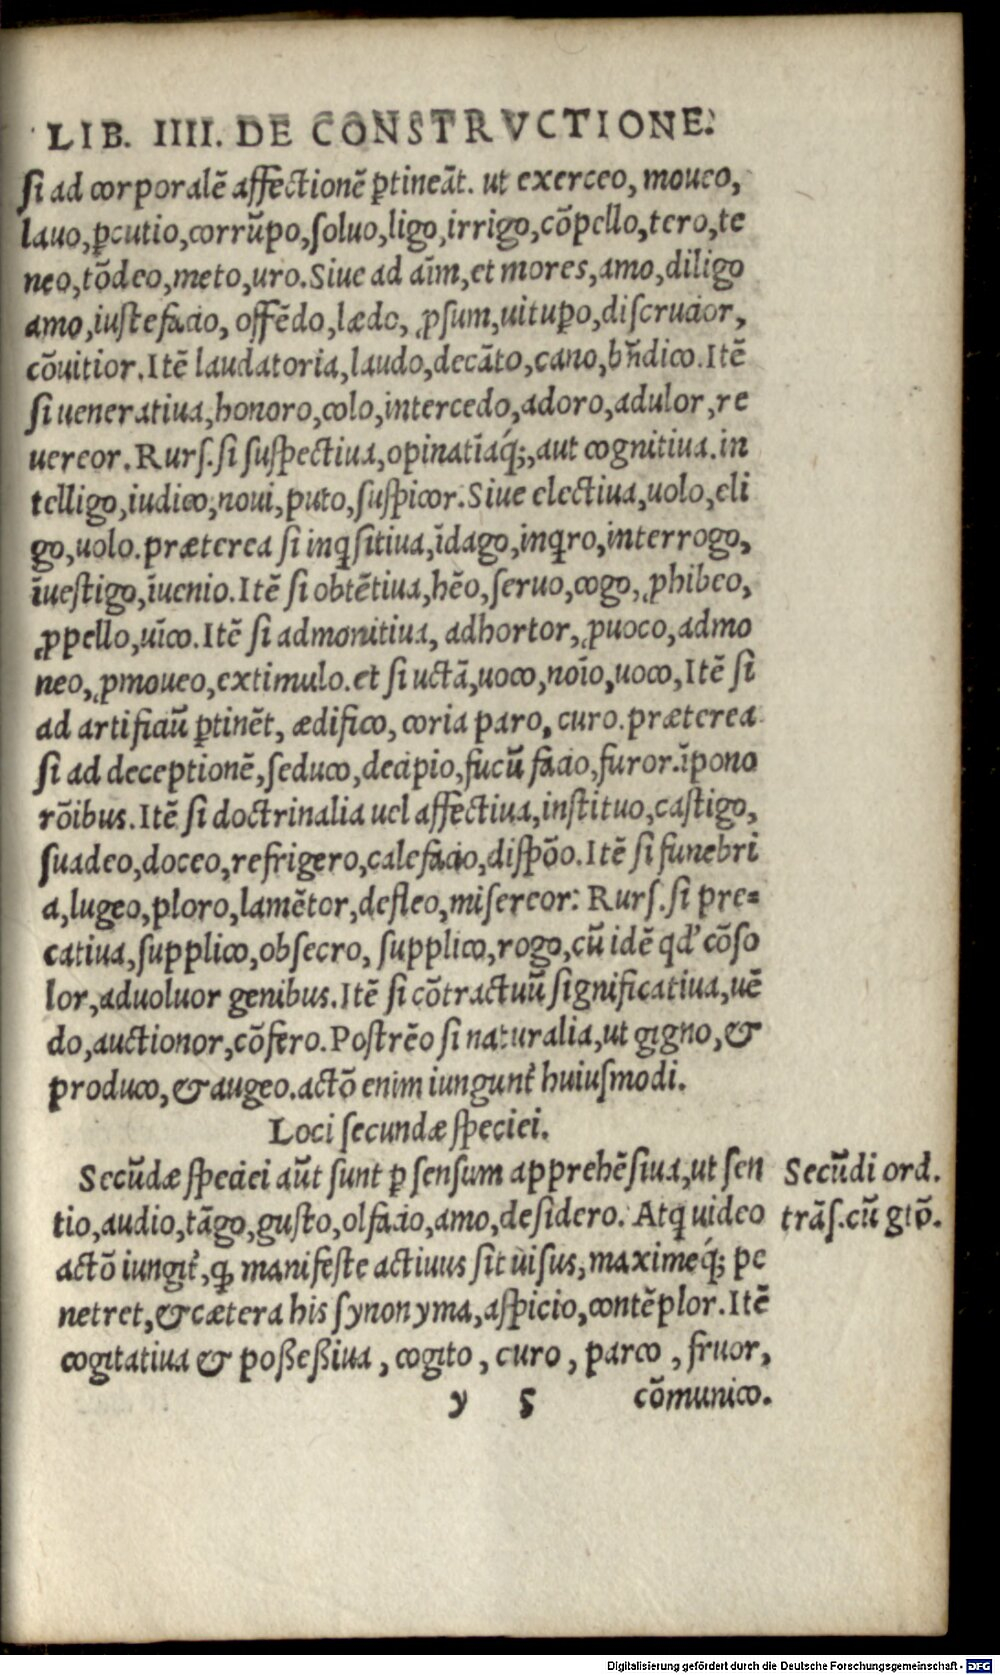 LIB. IIII. DE CONSTRVCTIONE.
ſi ad corporalē affectionē ꝑtineāt. ut exerceo, moueo,
lauo, ꝑcutio, corrūpo, ſoluo, ligo, irrigo, cōpello, tero, te
neo, tōdeo, meto, uro. Siue ad aīm, et mores, amo, diligo
amo, iuſtefacio, offēdo, lædo, ꝓſum, uituꝑo, diſcrucior,
cōuitior. Itē laudatoria, laudo, decāto, cano, bn̄dico. Itē
ſi ueneratiua, honoro, colo, intercedo, adoro, adulor, re
uereor. Rurſ. ſi ſuſpectiua, opinatīaq́;, aut cognitiua. in
telligo, iudico, noui, puto, ſuſpicor. Siue electiua, uolo, eli
go, uolo. præterea ſi inqſitiua, īdago, inqro, interrogo,
īueſtigo, īuenio. Itē ſi obtētiua, hēo, ſeruo, cogo, ꝓhibeo,
ꝓpello, uīco. Itē ſi admonitiua, adhortor, ꝓuoco, admo
neo, ꝓmoueo, extimulo. et ſi uctā, uoco, noīo, uoco, Itē ſi
ad artificiū ꝑtinēt, ædifico, coria paro, curo. præterea
ſi ad deceptionē, ſeduco, decipio, fucū facio, furor. īpono
rōibus. Itē ſi doctrinalia uel affectiua, inſtituo, caſtigo,
ſuadeo, doceo, refrigero, calefacio, diſpōo. Itē ſi funebri
a, lugeo, ploro, lamētor, defleo, miſereor: Rurſ. ſi pre=
catiua, ſupplico, obſecro, ſupplico, rogo, cū idē qd' cōſo
lor, aduoluor genibus. Itē ſi cōtractuū ſignificatiua, uē
do, auctionor, cōfero. Poſtrēo ſi naturalia, ut gigno, &
produco, & augeo. actō enim iungunt̉ huiuſmodi.
Loci ſecundæ ſpeciei.
Secūdæ ſpeciei aūt ſunt ꝑ ſenſum apprehēſiua, ut ſen
tio, audio, tāgo, guſto, olfacio, amo, deſidero. Atq uideo
actō iungit̉, ꝙ manifeſte actiuus ſit uiſus, maximeq́; pe
netret, & cætera his ſynonyma, aſpicio, contēplor. Itē
cogitatiua & poßeßiua, cogito, curo, parco, fruor,
y 5 cōmunico.
Secūdi ord.
trāſ. cū gtō.
Digitalisierung gefördert durch die Deutsche Forschungsgemeinschaft - DFG